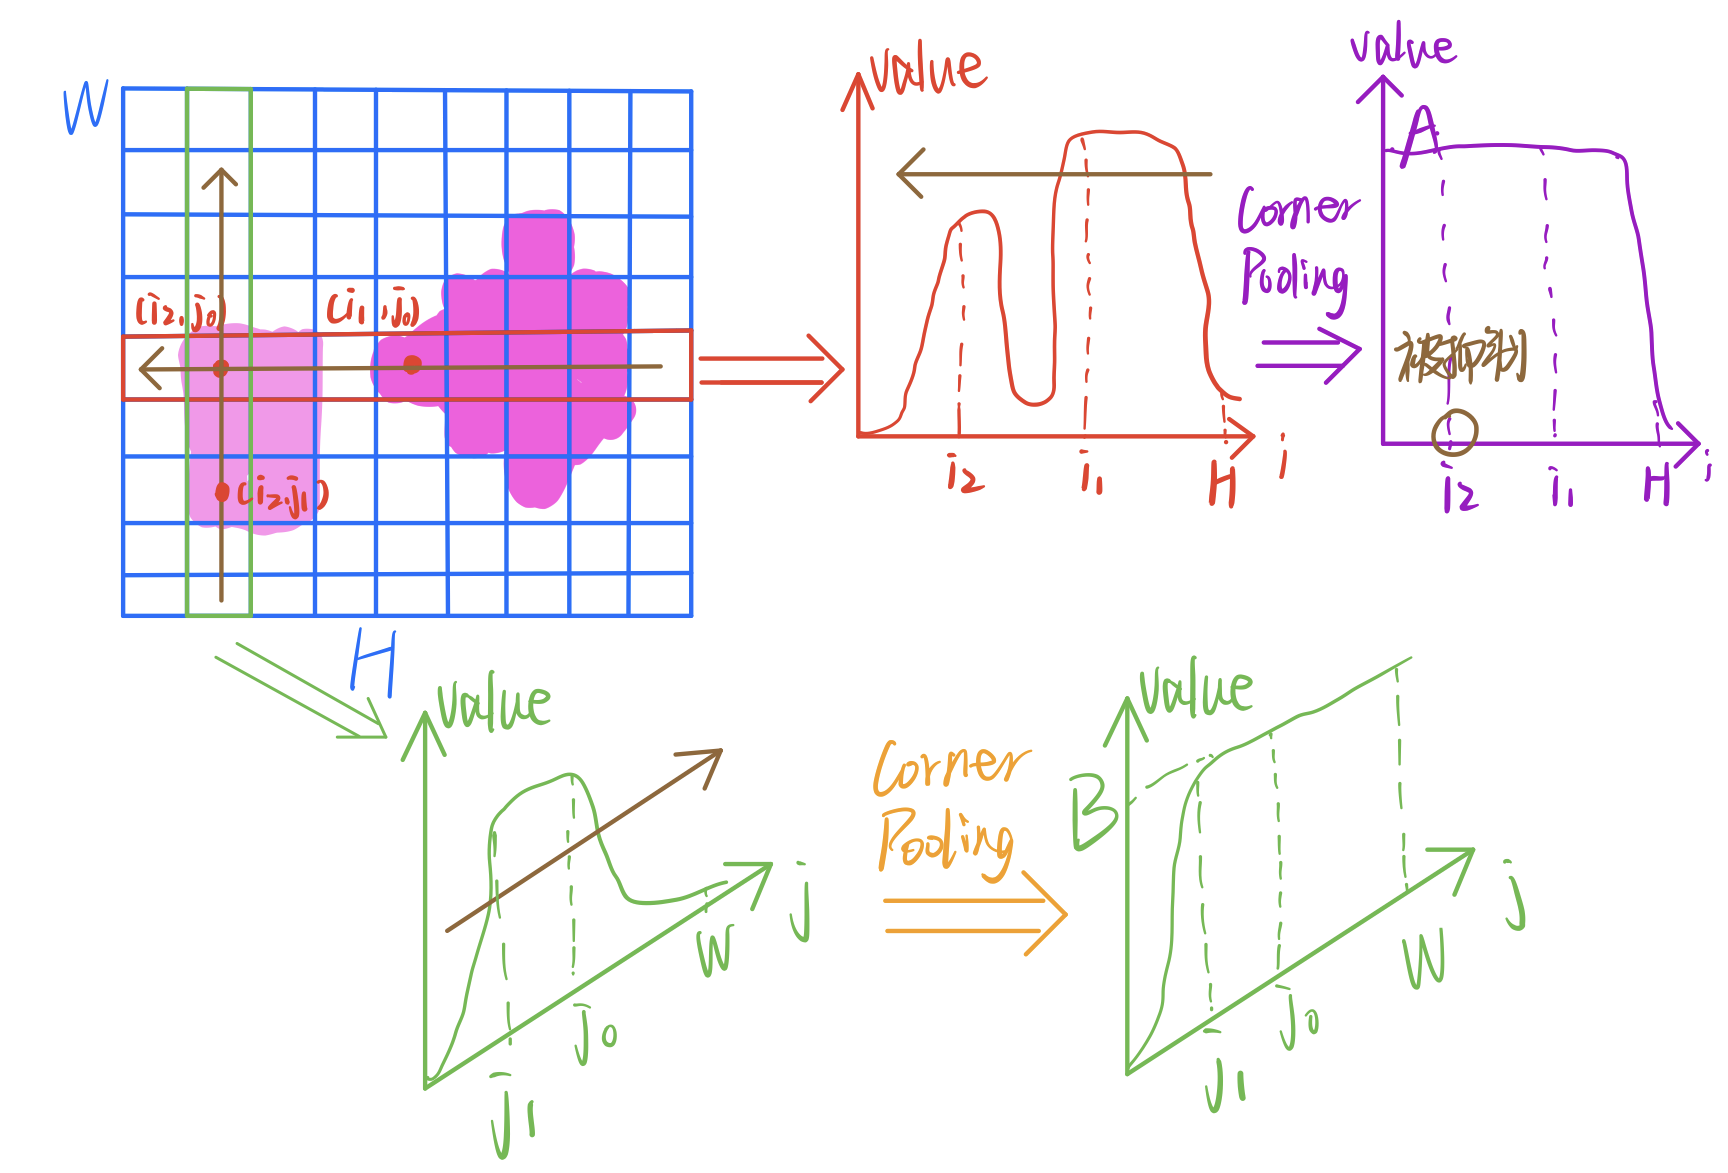 W
(i2,j0)
(i1,j0)
(i2,j1)
H
value
i2
i1
H
i
Corner
Pooling
value
A
被抑制
i2
i1
H
i
value
j
W
j0
j1
Corner
Pooling
value
B
j
W
j0
j1